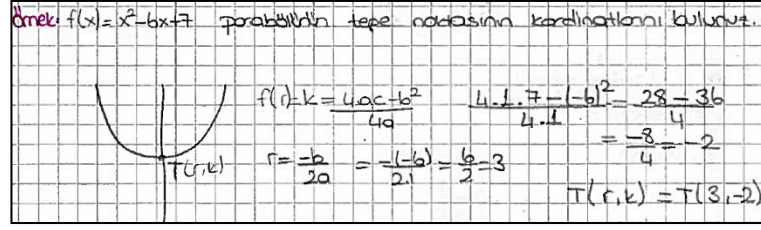 Örnek: f(x)=x²-6x+7 parabolünün tepe noktasının kordinatlarını bulunuz.
f(r)=k=4ac-b²/4a 4.1.7-(-6)²/4.1=28-36/4
=-8/4=-2
T(r,k)
r=-b/2a =-(-6)/2.1=6/2=3
T(r,k)=T(3,-2)